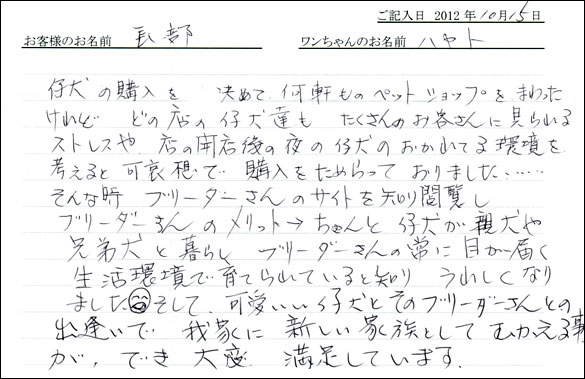 ご記入日 2012年10月15日
お客様のお名前 長部 ワンちゃんのお名前 ハヤト
仔犬の購入を 決めて、何軒ものペットショップをまわった
けれど どの店の仔犬達も たくさんのお客さんに見られる
ストレスや 店の閉店後の夜の仔犬のおかれてる環境を
考えると可哀想で 購入をためらっておりました、……
そんな時 ブリーダーさんのサイトを知り閲覧し
ブリーダーさんのメリット→ちゃんと仔犬が親犬や
兄弟犬と暮らし ブリーダーさんの常に目が届く
生活環境で育てられていると知り うれしくなり
ました😄そして、可愛いい仔犬とそのブリーダーさんとの
出逢いで 我家に新しい家族としてむかえる事
が、でき大変 満足しています.